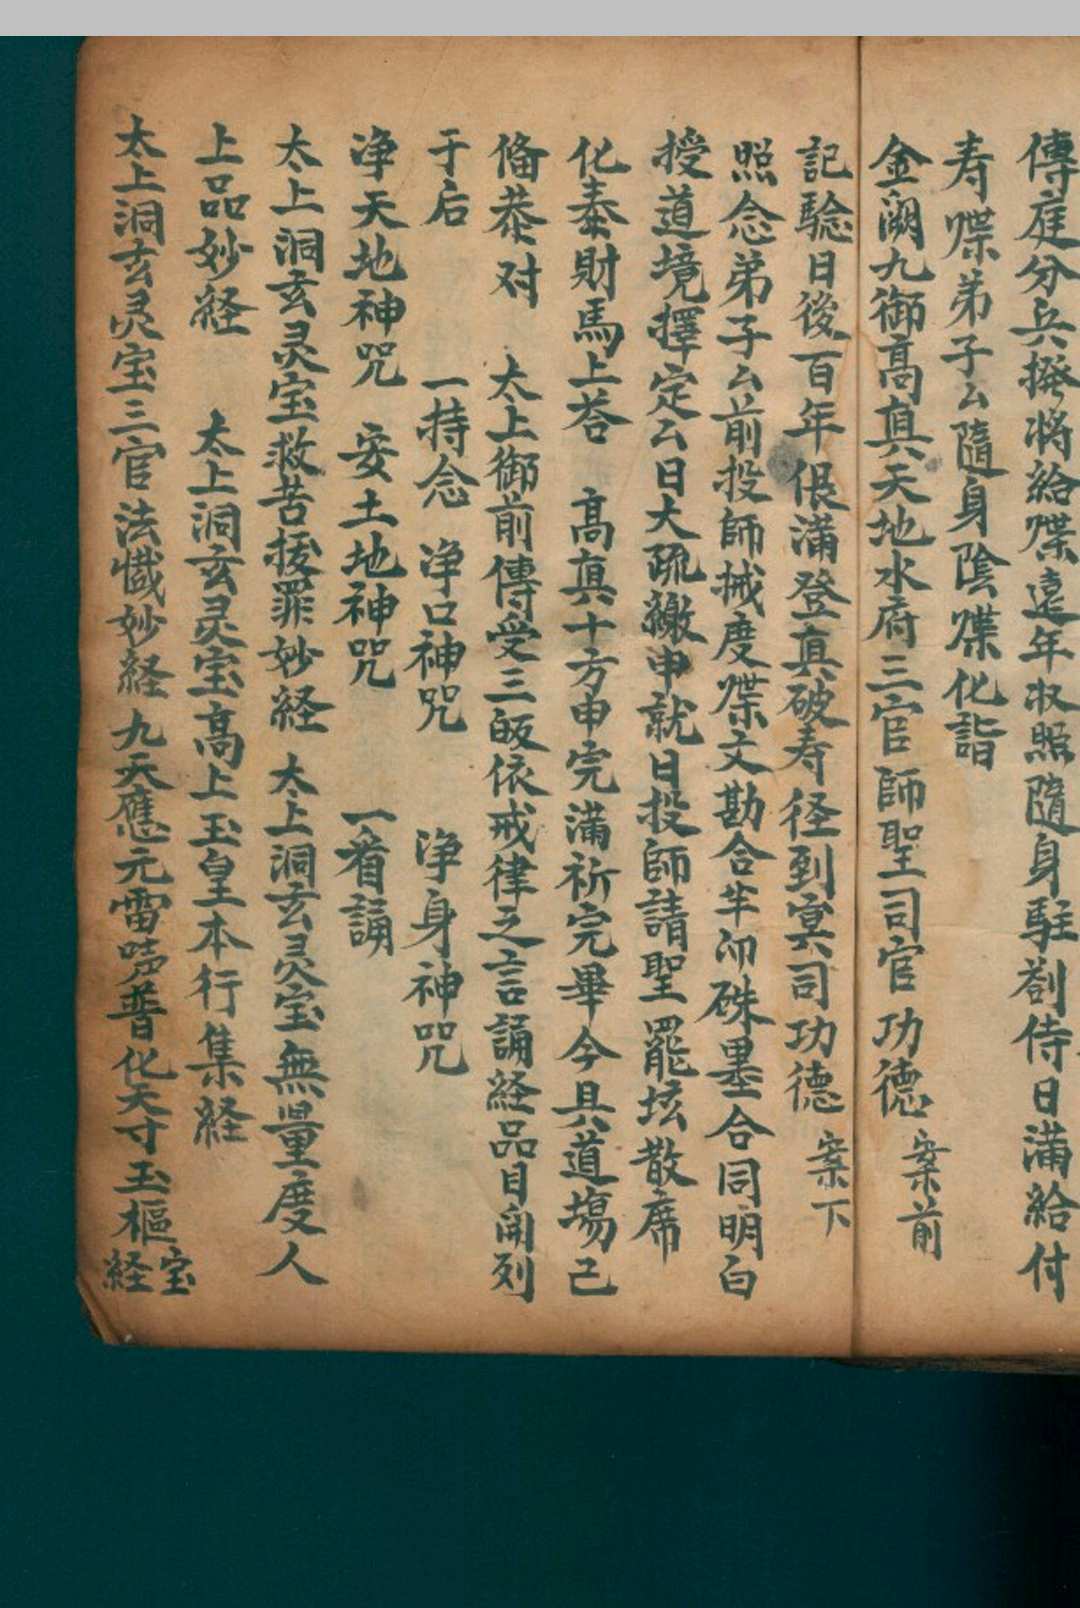 傳庭分兵撥将給㗼遠年收照隨身駐劄侍日滿給付
寿㗼弟子厶隨身陰㗼化詣
金闕九御高真天地水府三官師聖司官功德案前
記驗日後百年限滿登真破寿径到冥司功德案下
照念弟子厶前投師械度㗼文勘合半印硃墨合同明白
授道境擇定厶日大疏繳申就日投師請聖罷坛散席
化泰財馬上荅 高真十方申完滿祈完畢今具道場已
俻恭对 太上御前傳受三皈依戒律之言誦経品目開列
于后 一持念 净口神咒 净身神咒
净天地神咒 安土地神咒 一看誦
太上洞玄灵宝救苦拔罪妙経 太上洞玄灵宝無量度人
上品妙経 太上洞玄灵宝高上玉皇本行集経
太上洞玄灵宝三官法懺妙経 九天應元雷声普化天寸玉樞宝経